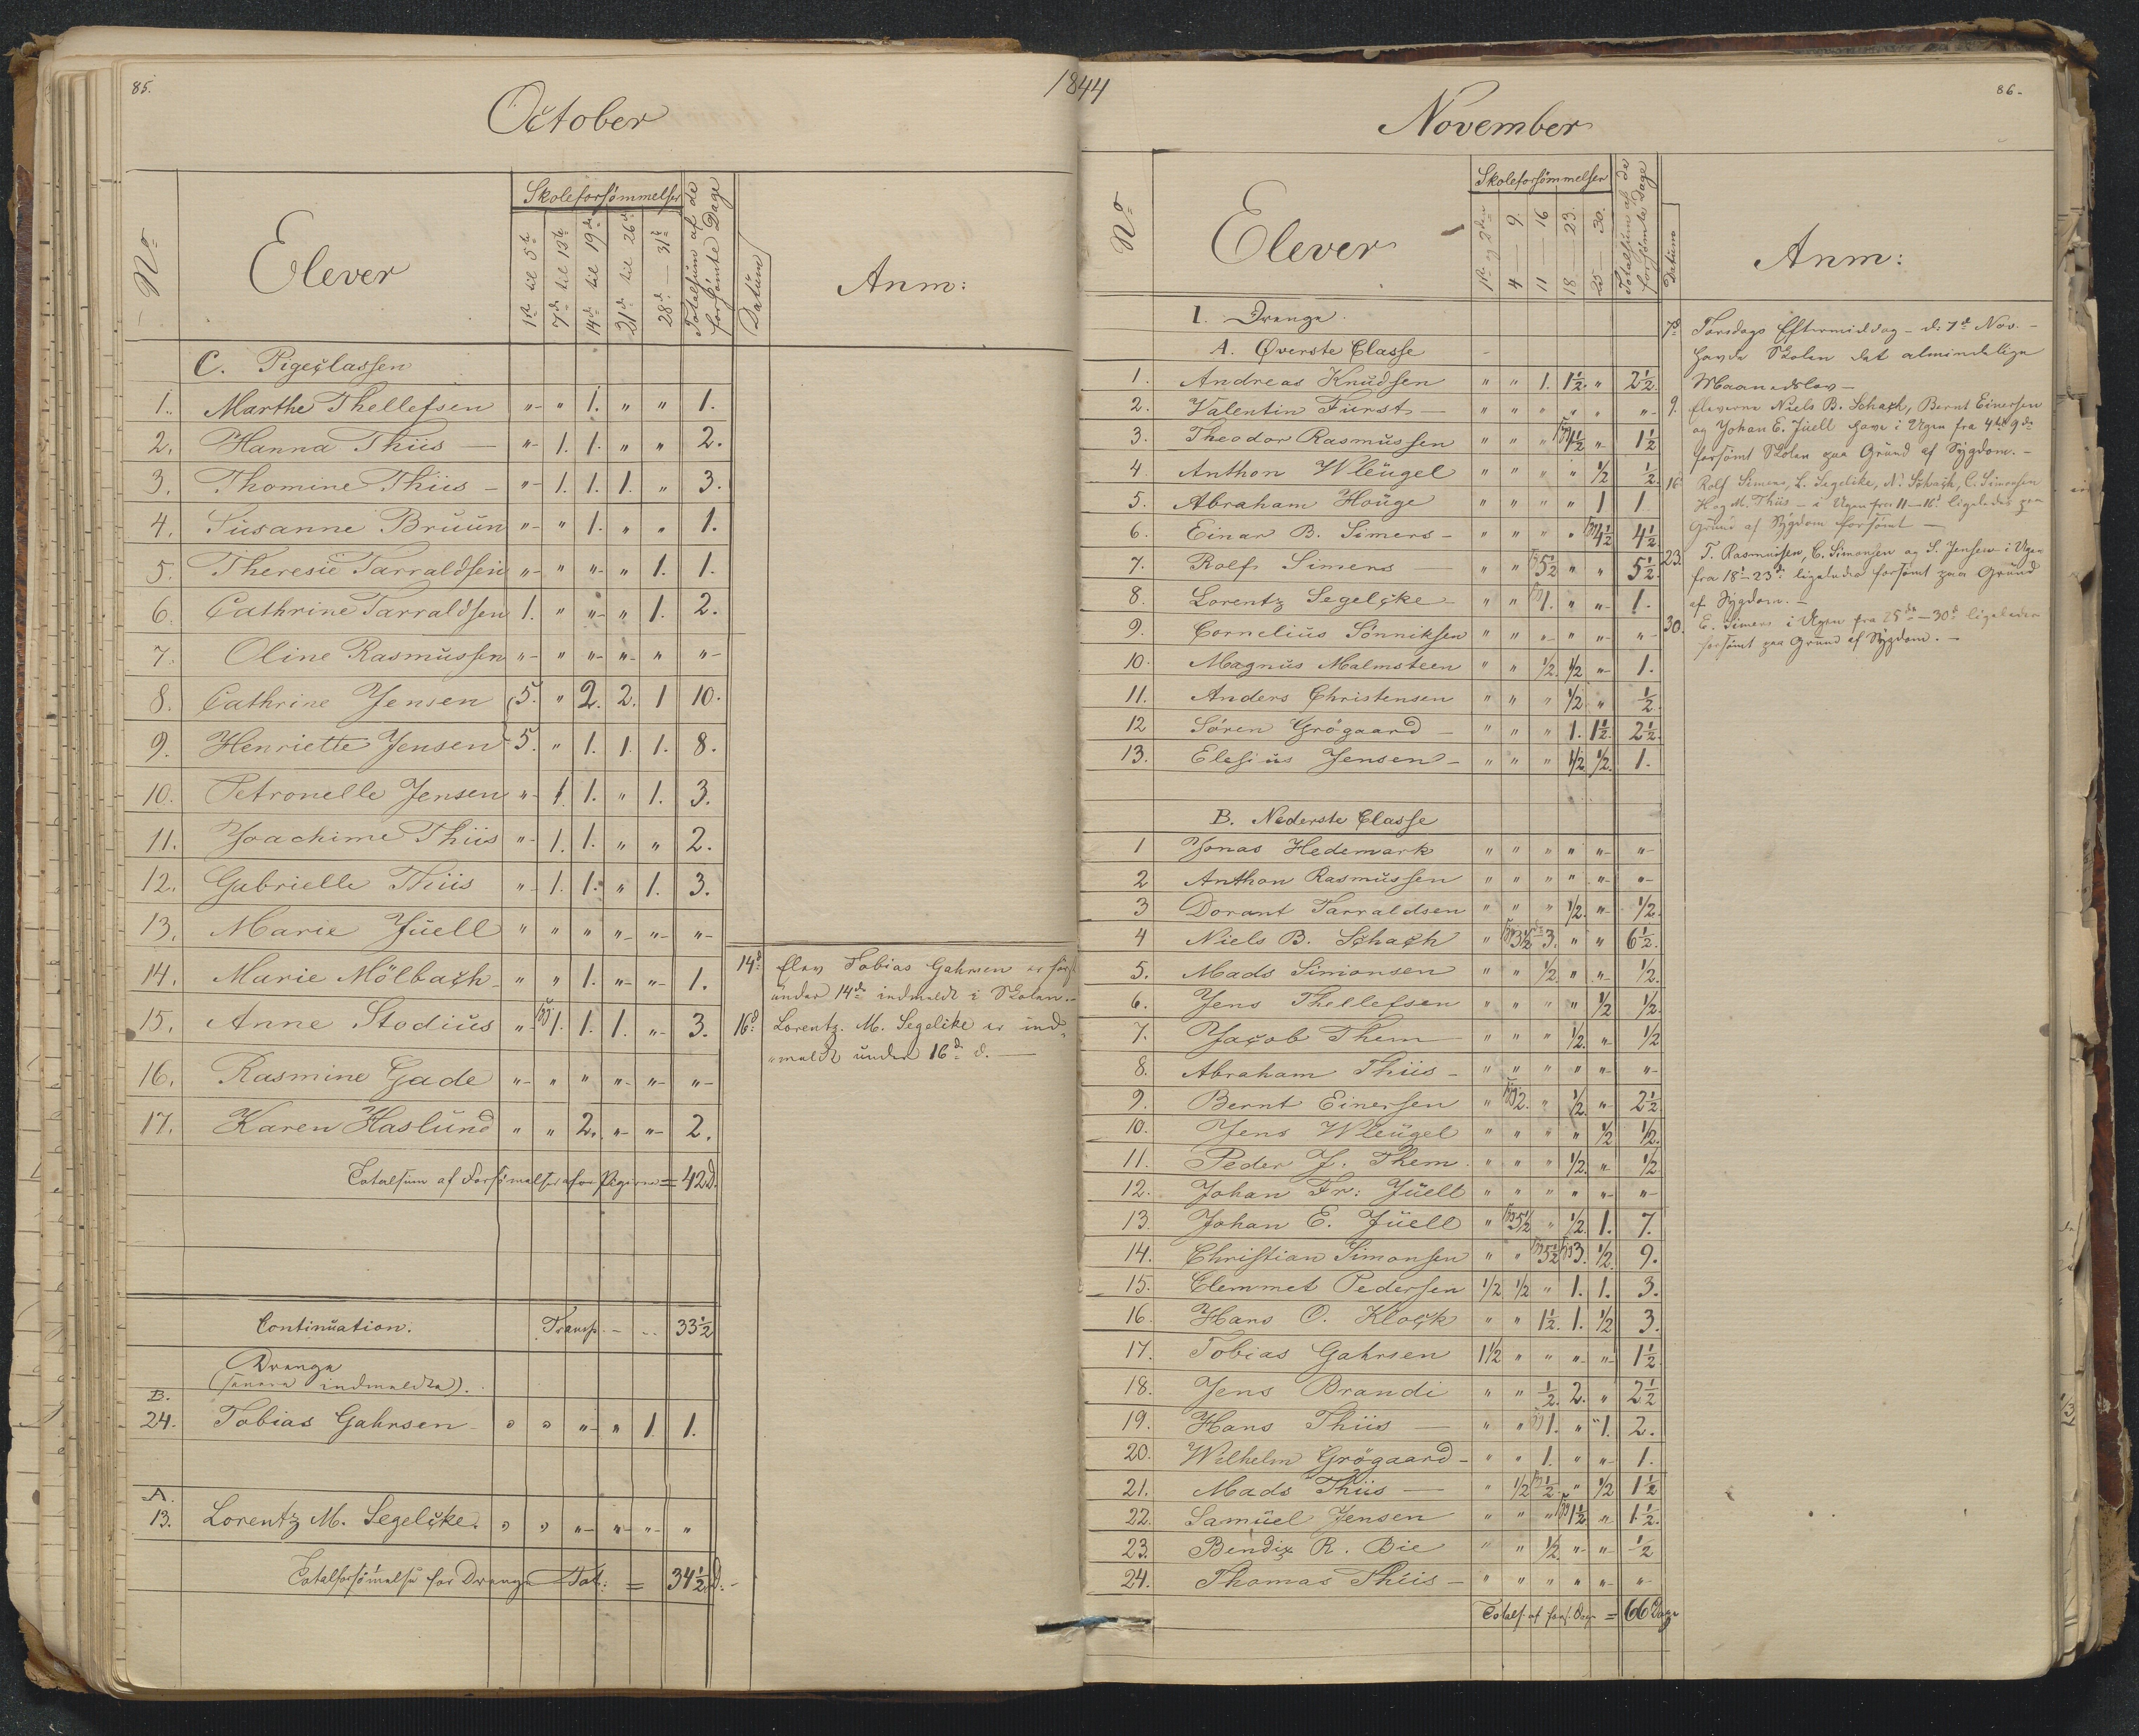 85.
1844
October
No
Elever
Skoleforsømmelser
1ste til 5te
7de til 12te
14de til 19de
21de til 26de
28de — 31te
Totalsum af de forsømte Dage
Datum
Anm:
C. Pigeclassen
1. Marthe Thellefsen „ „ 1. „ „ 1.
2. Hanna Thiis — „ 1. 1. „ „ 2.
3. Thomine Thiis — „ 1. 1. 1. „ 3.
4. Susanne Bruun „ „ 1. „ „ 1.
5. Theresie Tarraldsen „ „ „ „ 1. 1.
6. Cathrine Tarraldsen 1. „ „ „ 1. 2.
7. Oline Rasmussen „ „ „ „ „ „
8. Cathrine Jensen 5. „ 2. 2. 1 10.
9. Henriette Jensen 5. „ 1. 1. 1. 8.
10. Petronelle Jensen „ 1. 1. „ 1. 3.
11. Joachime Thiis „ 1. 1. „ „ 2.
12. Gabrielle Thiis „ 1. 1. „ 1. 3.
13. Marie Juell „ „ „ „ „ „
14. Marie Mölbach „ „ 1. „ „ 1.
15. Anne Stodius „ 1. 1. 1. „ 3.
16. Rasmine Gade „ „ „ „ „ „
17. Karen Haslund „ „ 2. „ „ 2.
Totalsum af Forsömelser for Pigerne = 42 D.
14d: Elev Tobias Gahrsen er først
under 14de indmeldt i Skolen.
16d: Lorentz M. Segelcke er ind-
„meldt under 16de d. —
Continuation. Transp. — 33½
Drenge
(senere indmeldte).
B.
24. Tobias Gahrsen „ „ „ „ 1 1.
A.
13. Lorentz M. Segelcke. „ „ „ „ „ „
Totalforsömelse for Drenge Tot: = 34½ D.
86.
November
No
Elever
Skoleforsömmelser
1ste og 2den
4 — 9.
11 — 16
18 — 23.
25 — 30.
Totalsum af de forsømte Dage
Datum
Anm:
I. Drenge.
A. Øverste Classe
1. Andreas Knudsen „ „ 1. 1½. „ 2½.
2. Valentin Furst — „ „ „ „ „ „
3. Theodor Rasmussen „ „ „ 1½ „ 1½
4. Anthon Wleugel „ „ „ „ ½ ½.
5. Abraham Houge „ „ „ „ 1 1
6. Einar B. Simers — „ „ „ „ 4½ 4½
7. Rolf Simers — „ „ 5½ „ „ 5½.
8. Lorentz Segelcke „ „ 1. „ „ 1.
9. Cornelius Sönniksen „ „ „ „ „ „
10. Magnus Malmsteen „ „ ½. ½ „ 1.
11. Anders Christensen „ „ „ ½ „ ½.
12 Søren Grögaard — „ „ „ 1. 1½. 2½.
13. Elesius Jensen — „ „ „ ½ ½. 1.
B. Nederste Classe
1 Jonas Hedemark „ „ „ „ „ „
2 Anthon Rasmussen „ „ „ „ „ „
3 Dorant Tarraldsen „ „ „ ½. „ ½.
4 Niels B. Schach „ 3½ 3. „ „ 6½.
5. Mads Simonsen „ „ ½ „ „ ½.
6. Jens Thellefsen „ „ „ „ ½ ½.
7. Jacob Them „ „ „ ½. „ ½
8. Abraham Thiis — „ „ „ „ „ „
9. Bernt Einersen „ 2. „ ½. „ 2½.
10. Jens Wleugel „ „ „ „ ½ ½.
11. Peder J. Them „ „ „ ½. „ ½
12. Johan Fr: Juell „ „ „ „ „ „
13. Johan E. Juell „ 5½ „ ½. 1. 7.
14. Christian Simonsen „ „ 5½ 3. ½. 9.
15. Clemmet Pedersen ½ ½ „ 1. 1. 3.
16. Hans O. Klock „ „ 1½. 1. ½ 3.
17. Tobias Gahrsen 1½ „ „ „ „ 1½
18. Jens Brandi „ „ ½. 2. „ 2½
19. Hans Thiis — „ „ 1. „ 1. 2.
20. Wilhelm Grögaard — „ „ 1. „ „ 1.
21. Mads Thiis — „ ½ ½ „ ½ 1½
22. Samuel Jensen „ „ „ 1½ „ 1½.
23. Bendix R. Bie „ „ ½. „ „ ½
24. Thomas Thiis — „ „ „ „ „ „
Totals. af fors. Dage = 66 Dage
7d. Torsdags Eftermiddag — d: 7de Nov. —
havde Skolen det almindelige
Maanedslov —
9. Eleverne Niels B. Schach, Bernt Einersen
og Johan E. Juell have i Ugen fra 4de–9de
forsömt Skolen paa Grund af Sygdom. —
16. Rolf Simers, L. Segelcke, N. Schach, C. Simonsen
H og M. Thiis — i Ugen fra 11–16d ligeledes paa
Grund af Sygdom forsömt —
23. T. Rasmussen, C. Simonsen og S. Jensen i Ugen
fra 18d–23de ligeledes forsömt paa Grund
af Sygdom. —
30. E. Simers i Ugen fra 25de–30d ligeledes
forsömt paa Grund af Sygdom. —